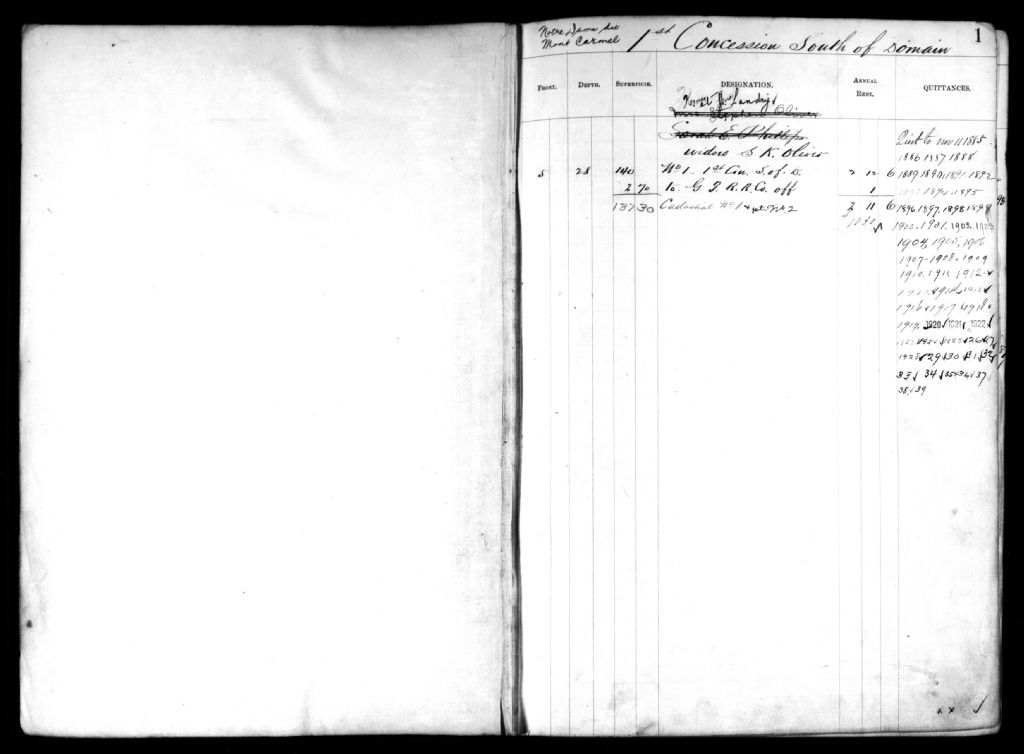 Notre Dame du
Mont Carmel 1st Concession South of Domain 1
FRONT. DEPTH. SUPERFICIE. DESIGNATION. ANNUAL RENT. QUITTANCES.
Landry
Mrs Stephen Oliver
Sarah E. Phillips
widow S K. Oliver
Quit to nov 11 1885
1886 1887 1888
5 28 140 No 1. 1st Con. S. of D. 2 12 6 1889 1890 1891 1892
2 70 to G T. R. R. Co. off 1 1893 1894 1895
137 30 Cadastral No 1 & pt. No. 2 2 11 6 1896 1897 1898 1899 98
10 30 1900. 1901. 1902. 1903
1904, 1905, 1906
1907-1908. 1909
1910. 1911 1912
1913 1914 1915
1916 1917 1918
1919. 1920 1921 1922
1923 1924 1925 26 27
1928 29 30 31 32
33 34 35 36 37
38 39
x x